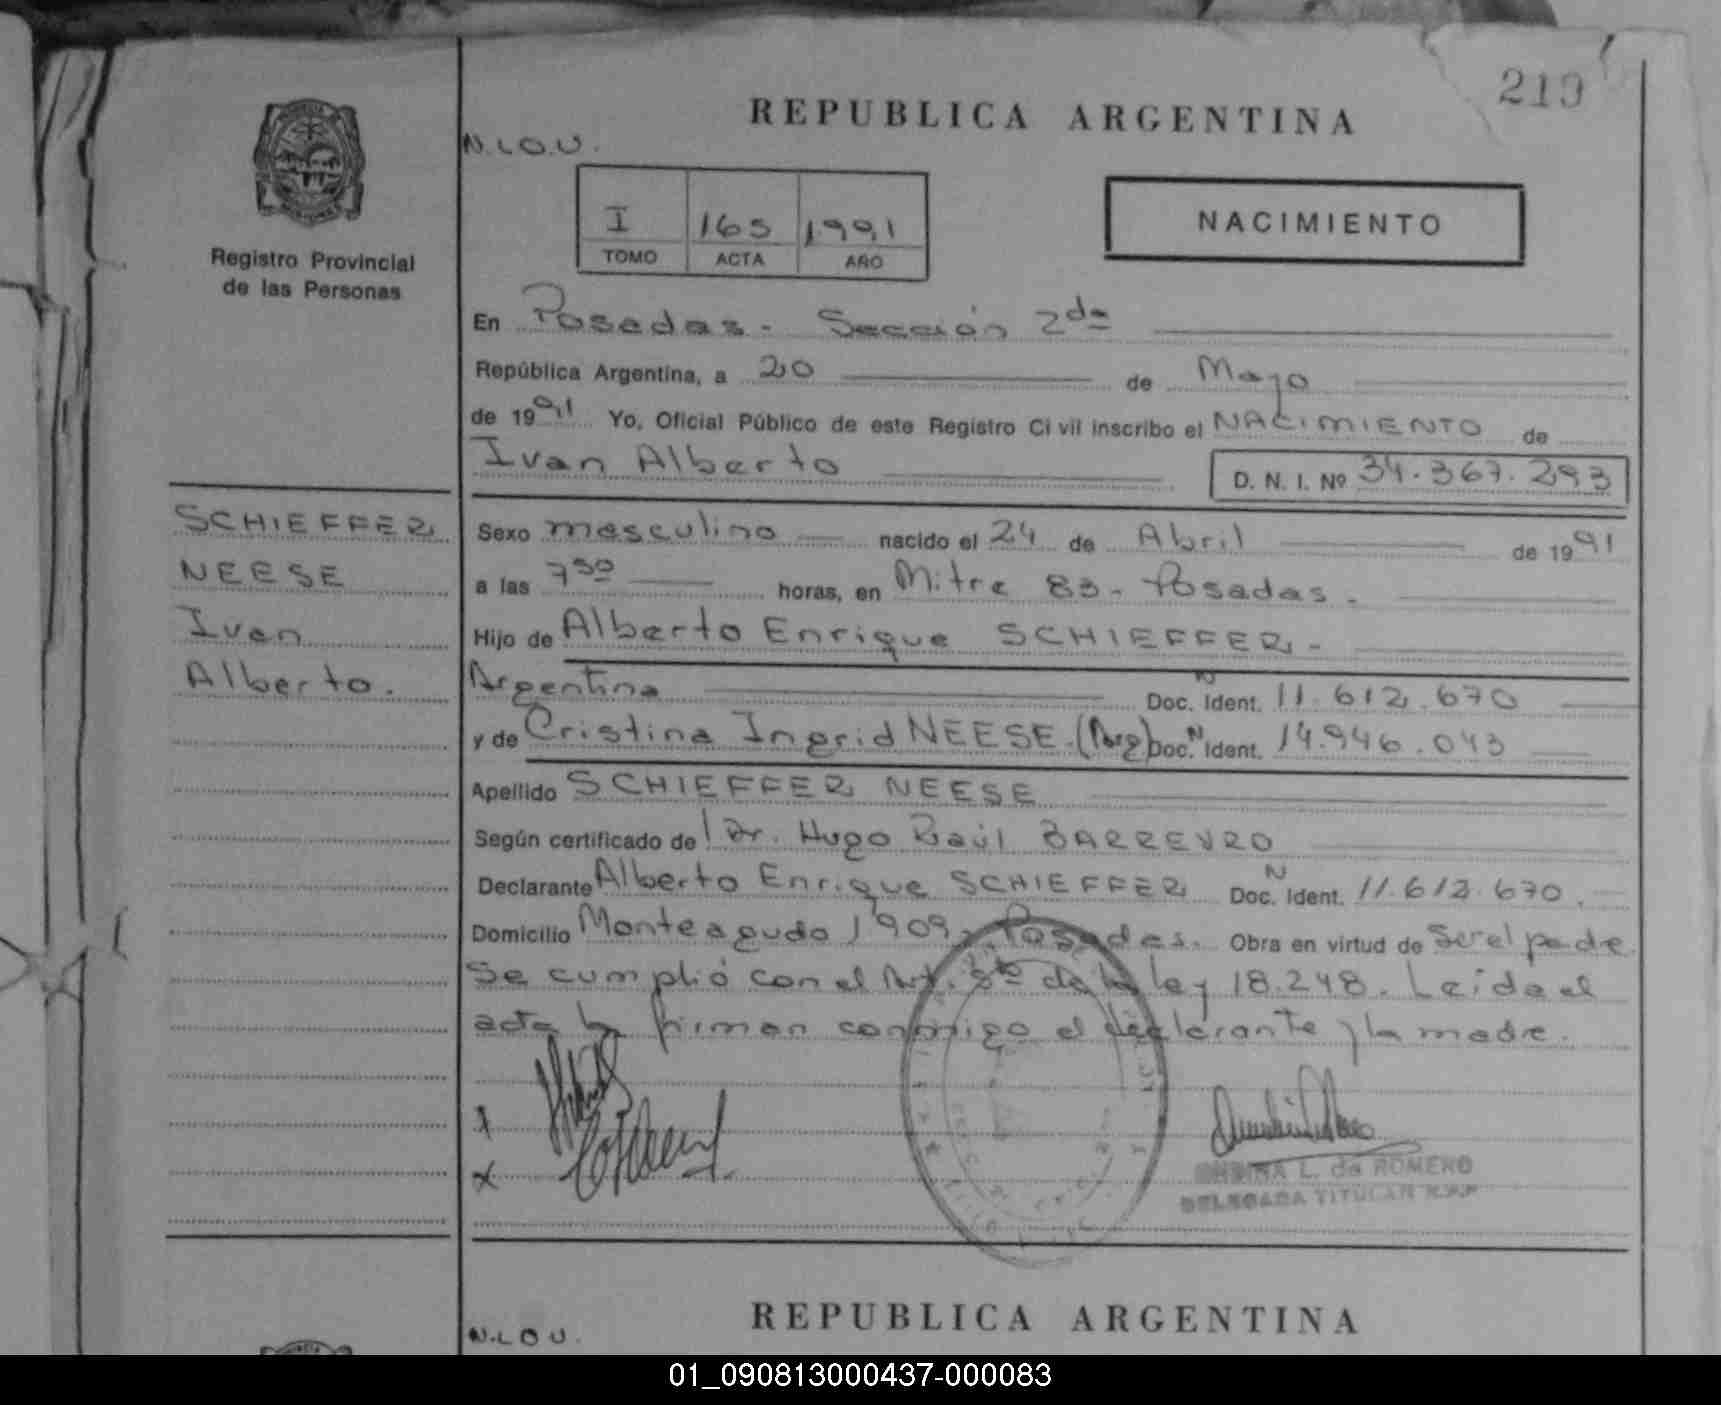 219
REPUBLICA ARGENTINA
N.L.O.U.
Registro Provincial
de las Personas
I 165 1991
TOMO ACTA AÑO
NACIMIENTO
En Posadas - Sección 2da
República Argentina, a 20 de Mayo
de 1991 Yo, Oficial Público de este Registro Civil inscribo el NACIMIENTO de
Ivan Alberto D. N. I. Nº 34.367.293
SCHIEFFER
NEESE
Ivan
Alberto.
Sexo masculino nacido el 24 de Abril de 1991
a las 7 30 horas, en Mitre 83 - Posadas -
Hijo de Alberto Enrique SCHIEFFER -
Argentina Doc. N Ident. 11.612.670
y de Cristina Ingrid NEESE. (Arg) Doc. N Ident. 14.946.043
Apellido SCHIEFFER NEESE
Según certificado de l Dr. Hugo Raúl BARREYRO
Declarante Alberto Enrique SCHIEFFER Doc. N Ident. 11.612.670.
Domicilio Monteagudo 1909 - Posadas. Obra en virtud de Ser el padre
Se cumplió con el Art. de la ley 18.248. Leída el
acta la firman conmigo el declarante y la madre.
x
x
L. de ROMERO
DELEGADA TITULAR R.P.P
REPUBLICA ARGENTINA
N.L.O.U.
01_090813000437-000083